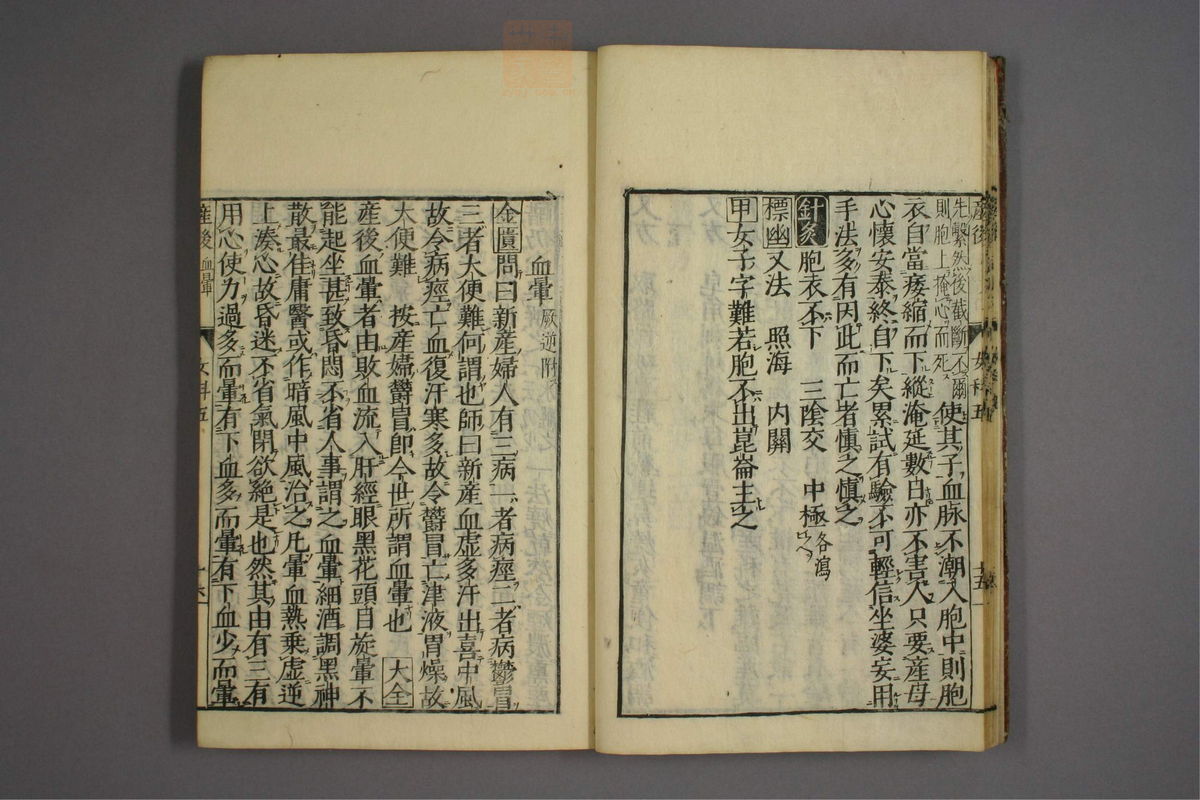 先繫然後截斷不爾
則胞上掩心而死
使其子血脉不潮入胞中則胞
衣自當痿縮而下縱淹延數日亦不害人只要産母
心懷安泰終自下矣累試有驗不可輕信坐婆妄用
手法多有因此而亡者慎之慎之
針灸 胞衣不下 三陰交 中極各瀉
標幽 又法 照海 内關
甲 女子字難若胞不出崑崙主之
血暈 厥逆附
金匱 問曰新産婦人有三病一者病痙二者病鬱冒
三者大便難何謂也師曰新産血虛多汗出喜中風
故令病痙亡血復汗寒多故令鬱冒亡津液胃燥故
大便難 按産婦鬱冒即今世所謂血暈也 大全
産後血暈者由敗血流入肝經眼黑花頭目旋暈不
能起坐甚致昏悶不省人事謂之血暈細酒調黑神
散最佳庸醫或作暗風中風治之凡暈血熱乗虛逆
上湊心故昏迷不省氣閉欲絶是也然其由有三有
用心使力過多而暈有下血多而暈有下血少而暈
産後 血暈 女科五